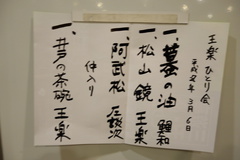 王楽 ひとり会
平成二十年 3月6日
一、蟇の油 鯉和
一、松山鏡 王楽
一、阿武松
仲入り
一、井戸の茶碗 王楽